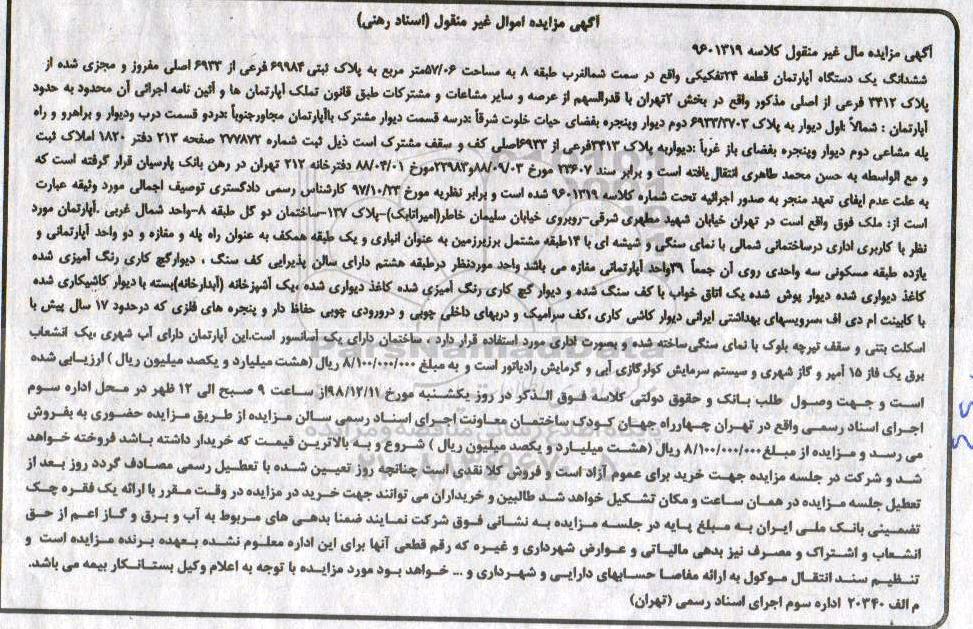 آگهی مزایده اموال غیر منقول (اسناد رهنی)
آگهی مزایده مال غیر منقول کلاسه ۹۶۰۱۳۱۹
ششدانگ یک دستگاه آپارتمان قطعه ۲۴تفکیکی واقع در سمت شمالغرب طبقه ۸ به مساحت ۵۷/۰۶متر مربع به پلاک ثبتی ۶۹۹۸۴ فرعی از ۶۹۳۳ اصلی مفروز و مجزی شده از
پلاک ۳۴۱۲ فرعی از اصلی مذکور واقع در بخش ۲تهران با قدرالسهم از عرصه و سایر مشاعات و مشترکات طبق قانون تملک آپارتمان ها و آئین نامه اجرائی آن محدود به حدود
آپارتمان : شمالاً بلول دیوار به پلاک ۶۹۳۳/۳۷۰۳ دوم دیوار وپنجره بفضای حیات خلوت شرقاً :درسه قسمت دیوار مشترک باآپارتمان مجاورجنوباً :دردو قسمت درب ودیوار و براهرو و راه
پله مشاعی دوم دیوار وپنجره بفضای باز غرباً :دیواربه پلاک ۳۴۱۳فرعی از ۶۹۳۳اصلی کف و سقف مشترک است ذیل ثبت شماره ۳۷۷۸۷۲ صفحه ۲۱۳ دفتر ۱۸۲۰ املاک ثبت
و مع الواسطه به حسن محمد طاهری انتقال یافته است و برابر سند ۲۴۶۰۷ مورخ ۸۸/۰۹/۰۳و۲۳۹۸۳مورخ ۸۸/۰۴/۰۱ دفترخانه ۲۱۲ تهران در رهن بانک پارسیان قرار گرفته است که
به علت عدم ایفای تعهد منجر به صدور اجرائیه تحت شماره کلاسه ۹۶۰۱۳۱۹ شده است و برابر نظریه مورخ ۹۷/۱۰/۲۳ کارشناس رسمی دادگستری توصیف اجمالی مورد وثیقه عبارت
است از: ملک فوق واقع است در تهران خیابان شهید مطهری شرقی-روبروی خیابان سلیمان خاطر(امیراتابک)-پلاک ۱۳۷-ساختمان دو گل طبقه ۸-واحد شمال غربی .آپارتمان مورد
نظر با کاربری اداری درساختمانی شمالی با نمای سنگی و شیشه ای با ۱۴طبقه مشتمل برزیرزمین به عنوان انباری و یک طبقه همکف به عنوان راه پله و مغازه و دو واحد آپارتمانی و
یازده طبقه مسکونی سه واحدی روی آن جمعاً ۳۹واحد آپارتمانی مغازه می باشد واحد موردنظر درطبقه هشتم دارای سالن پذیرایی کف سنگ ، دیوارگچ کاری رنگ آمیزی شده
کاغذ دیواری شده دیوار پوش شده یک اتاق خواب با کف سنگ شده و دیوار گچ کاری رنگ آمیزی شده کاغذ دیواری شده ،یک آشپزخانه (آبدارخانه)بسته با دیوار کاشیکاری شده
با کابینت ام دی اف ،سرویسهای بهداشتی ایرانی دیوار کاشی کاری ،کف سرامیک و دربهای داخلی چوبی و درورودی چوبی حفاظ دار و پنجره های فلزی که درحدود ۱۷ سال پیش با
اسکلت بتنی و سقف تیرچه بلوک با نمای سنگی‌ساخته شده و بصورت اداری مورد استفاده قرار دارد ، ساختمان دارای یک آسانسور است.این آپارتمان دارای آب شهری ،یک انشعاب
برق یک فاز ۱۵ آمپر و گاز شهری و سیستم سرمایش کولرگازی آبی و گرمایش رادیاتور است و به مبلغ ۸/۱۰۰/۰۰۰/۰۰۰ ریال (هشت میلیارد و یکصد میلیون ریال ) ارزیابی شده
است و جهت وصول طلب بانک و حقوق دولتی کلاسه فوق الذکر در روز یکشنبه مورخ ۹۸/۱۲/۱۱از ساعت ۹ صبح الی ۱۲ ظهر در محل اداره سوم
اجرای اسناد رسمی واقع در تهران چهارراه جهان کودک ساختمان معاونت اجرای اسناد رسمی سالن مزایده از طریق مزایده حضوری به بفروش
می رسد و مزایده از مبلغ ۸/۱۰۰/۰۰۰/۰۰۰ ریال (هشت میلیارد و یکصد میلیون ریال ) شروع و به بالاترین قیمت که خریدار داشته باشد فروخته خواهد
شد و شرکت در جلسه مزایده جهت خرید برای عموم آزاد است و فروش کلا نقدی است چنانچه روز تعیین شده با تعطیل رسمی مصادف گردد روز بعد از
تعطیل جلسه مزایده در همان ساعت و مکان تشکیل خواهد شد طالبین و خریداران می توانند جهت خرید در مزایده در وقت مقرر با ارائه یک فقره چک
تضمینی بانک ملی ایران به مبلغ پایه در جلسه مزایده به نشانی فوق شرکت نمایند ضمنا بدهی های مربوط به آب و برق و گاز اعم از حق
انشعاب و اشتراک و مصرف نیز بدهی مالیاتی و عوارض شهرداری و غیره که رقم قطعی آنها برای این اداره معلوم نشده بعهده برنده مزایده است و
تنظیم سند انتقال موکول به ارائه مفاصا حسابهای دارایی و شهرداری و ... خواهد بود مورد مزایده با توجه به اعلام وکیل بستانکار بیمه می باشد.
م الف ۲۰۳۴۰ اداره سوم اجرای اسناد رسمی (تهران)